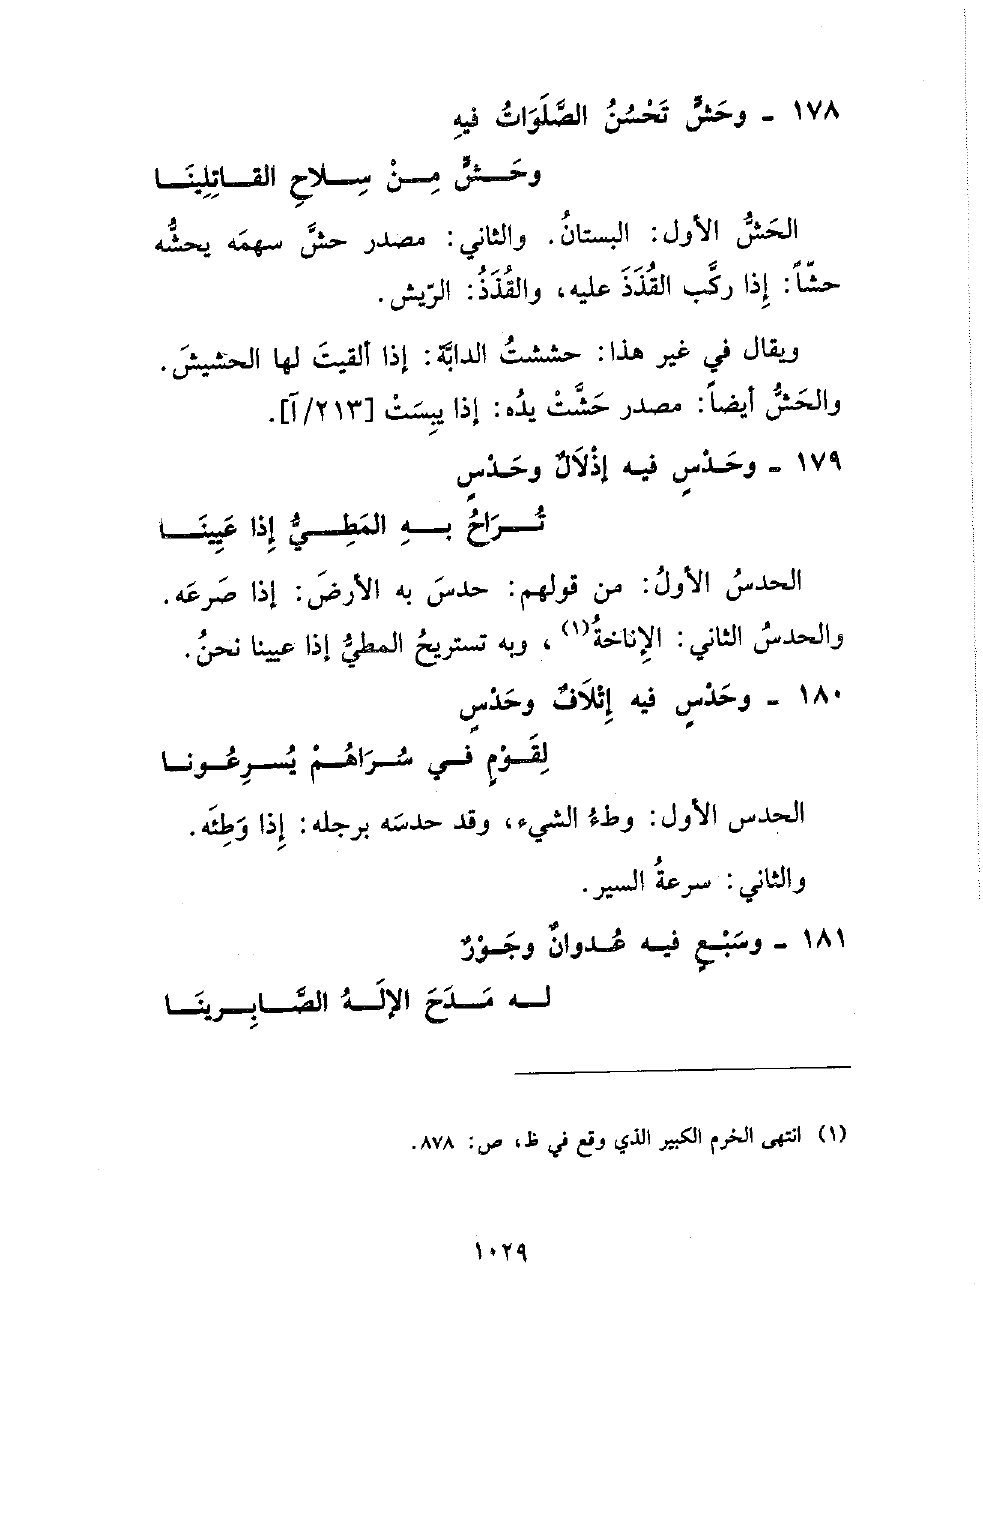 ١٧٨ ـ وحَشٍّ تَحْسُنُ الصَّلَوَاتُ فيهِ
وحَـــشٍّ مِـــنْ سِـــلاحِ القـــاتِلِينَـــا
الحَشُّ الأول: البستانُ. والثاني: مصدر حشَّ سهمَه يحشُّه
حشّاً: إذا ركَّب القُذَذَ عليه، والقُذَذُ: الرّيش.
ويقال في غير هذا: حششتُ الدابَّة: إذا ألقيتَ لها الحشيشَ.
والحَشُّ أيضاً: مصدر حَشَّتْ يدُه: إذا يبِسَتْ [٢١٣/آ].
١٧٩ ـ وحَـدْسٍ فيـه إذْلَالٌ وحَـدْسٍ
تُـــرَاحُ بـــهِ المَطِـــيُّ إِذا عَيِينَـــا
الحدسُ الأولُ: من قولهم: حدسَ به الأرضَ: إذا صَرعَه.
والحدسُ الثاني: الإِناخةُ(١)، وبه تستريحُ المطيُّ إذا عيينا نحنُ.
١٨٠ ـ وحَدْسٍ فيه إِتْلَافٌ وحَدْسٍ
لِقَـــوْمٍ فـــي سُـــرَاهُـــمْ يُســـرِعُـــونـــا
الحدس الأول: وطءُ الشيء، وقد حدسَه برجله: إِذا وَطِئَه.
والثاني: سرعةُ السير.
١٨١ ـ وسَبْـعٍ فيـه عُـدوانٌ وجَـوْرٌ
لـــه مَـــدَحَ الإلَـــهُ الصَّـــابِـــرينَـــا
(١) انتهى الخرم الكبير الذي وقع في ظ، ص: ٨٧٨.
١٠٢٩